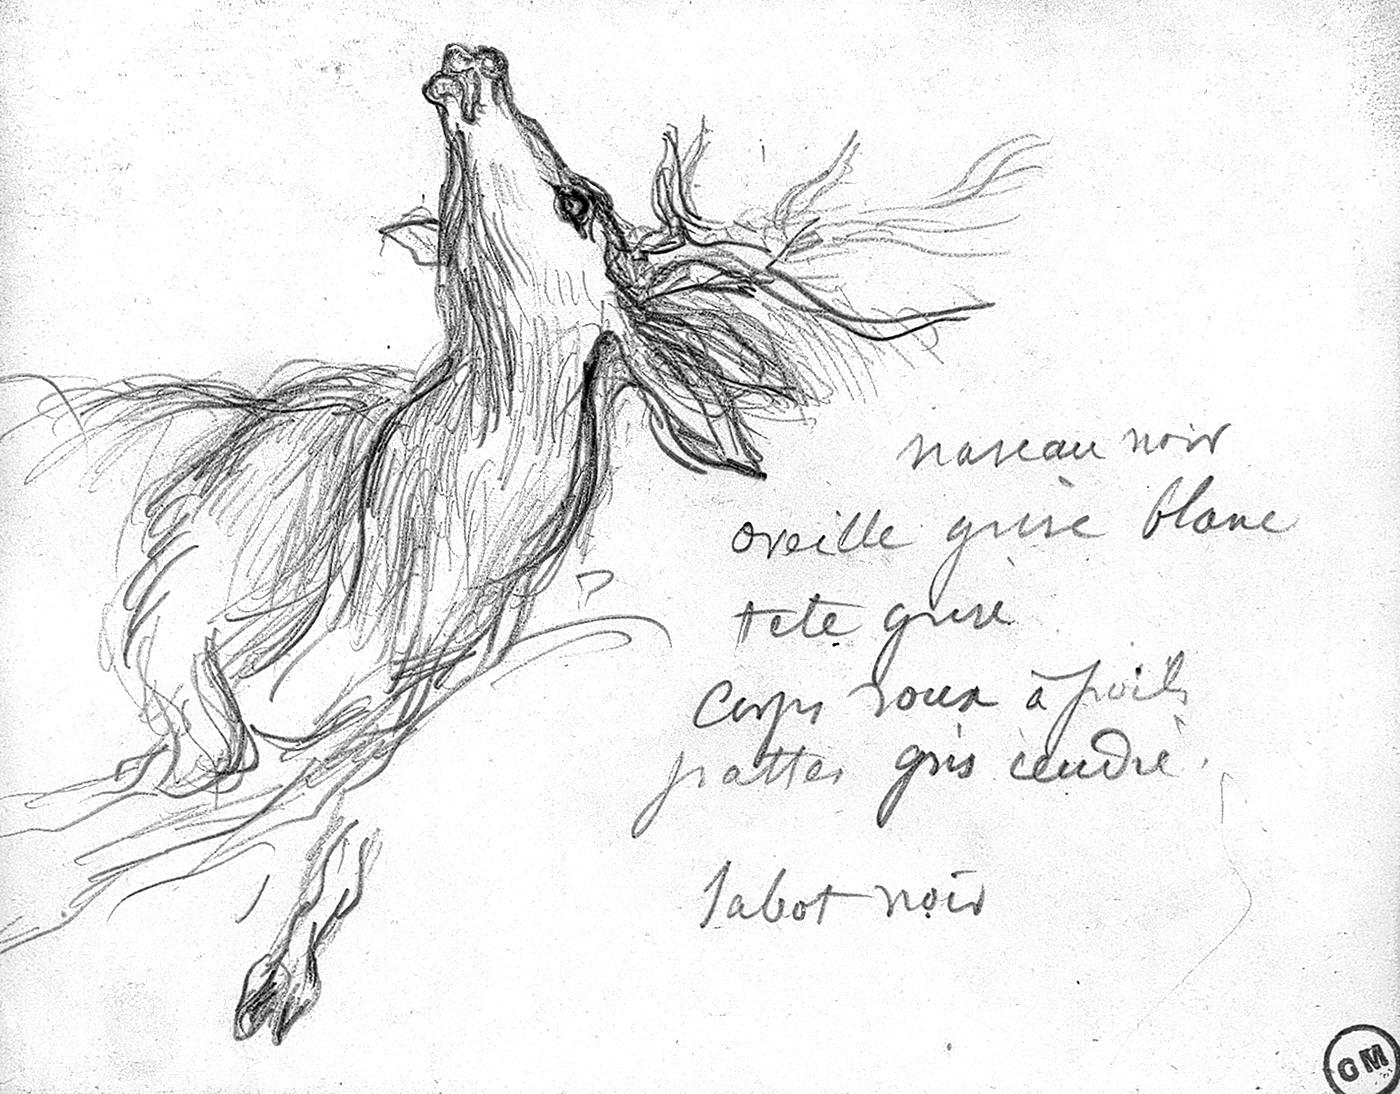 naseau noir
oreille grise blanc
tete grise
Corps roux à poils
pattes gris cendré.
sabot noir
GM